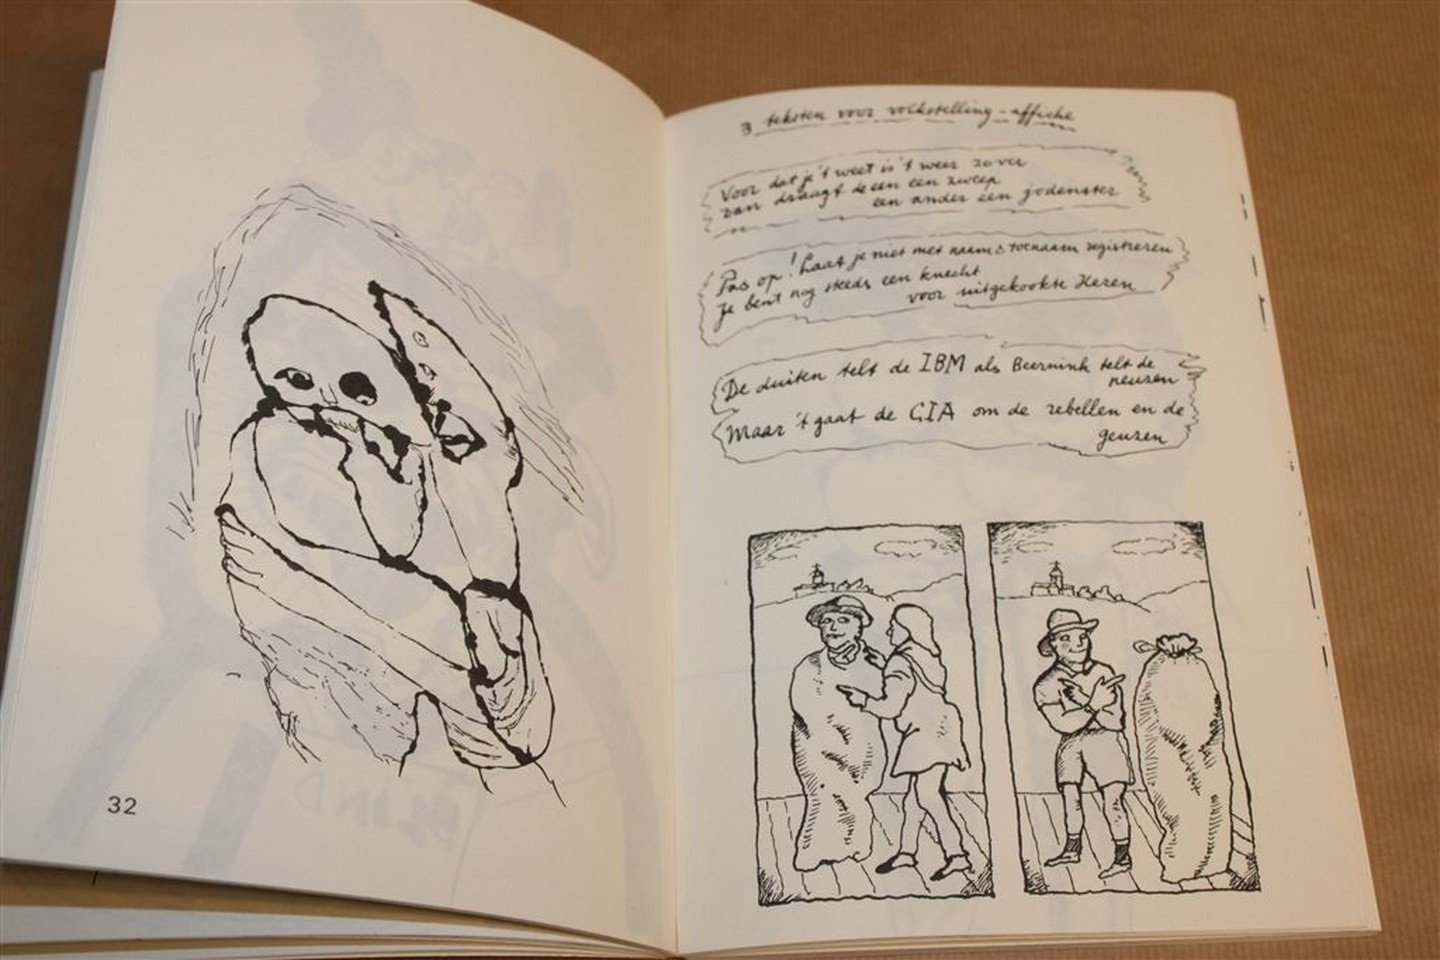 32
3 teksten voor volkstelling-affiche
Voor dat je 't weet is 't weer zover
dan draagt de een een zweep
een ander een jodenster
Pas op! Laat je niet met naam & toenaam registreren
Je bent nog steeds een knecht
voor uitgekookte Heren
De duiten telt de IBM als Beernink telt de
neuzen
Maar 't gaat de CIA om de rebellen en de
geuzen